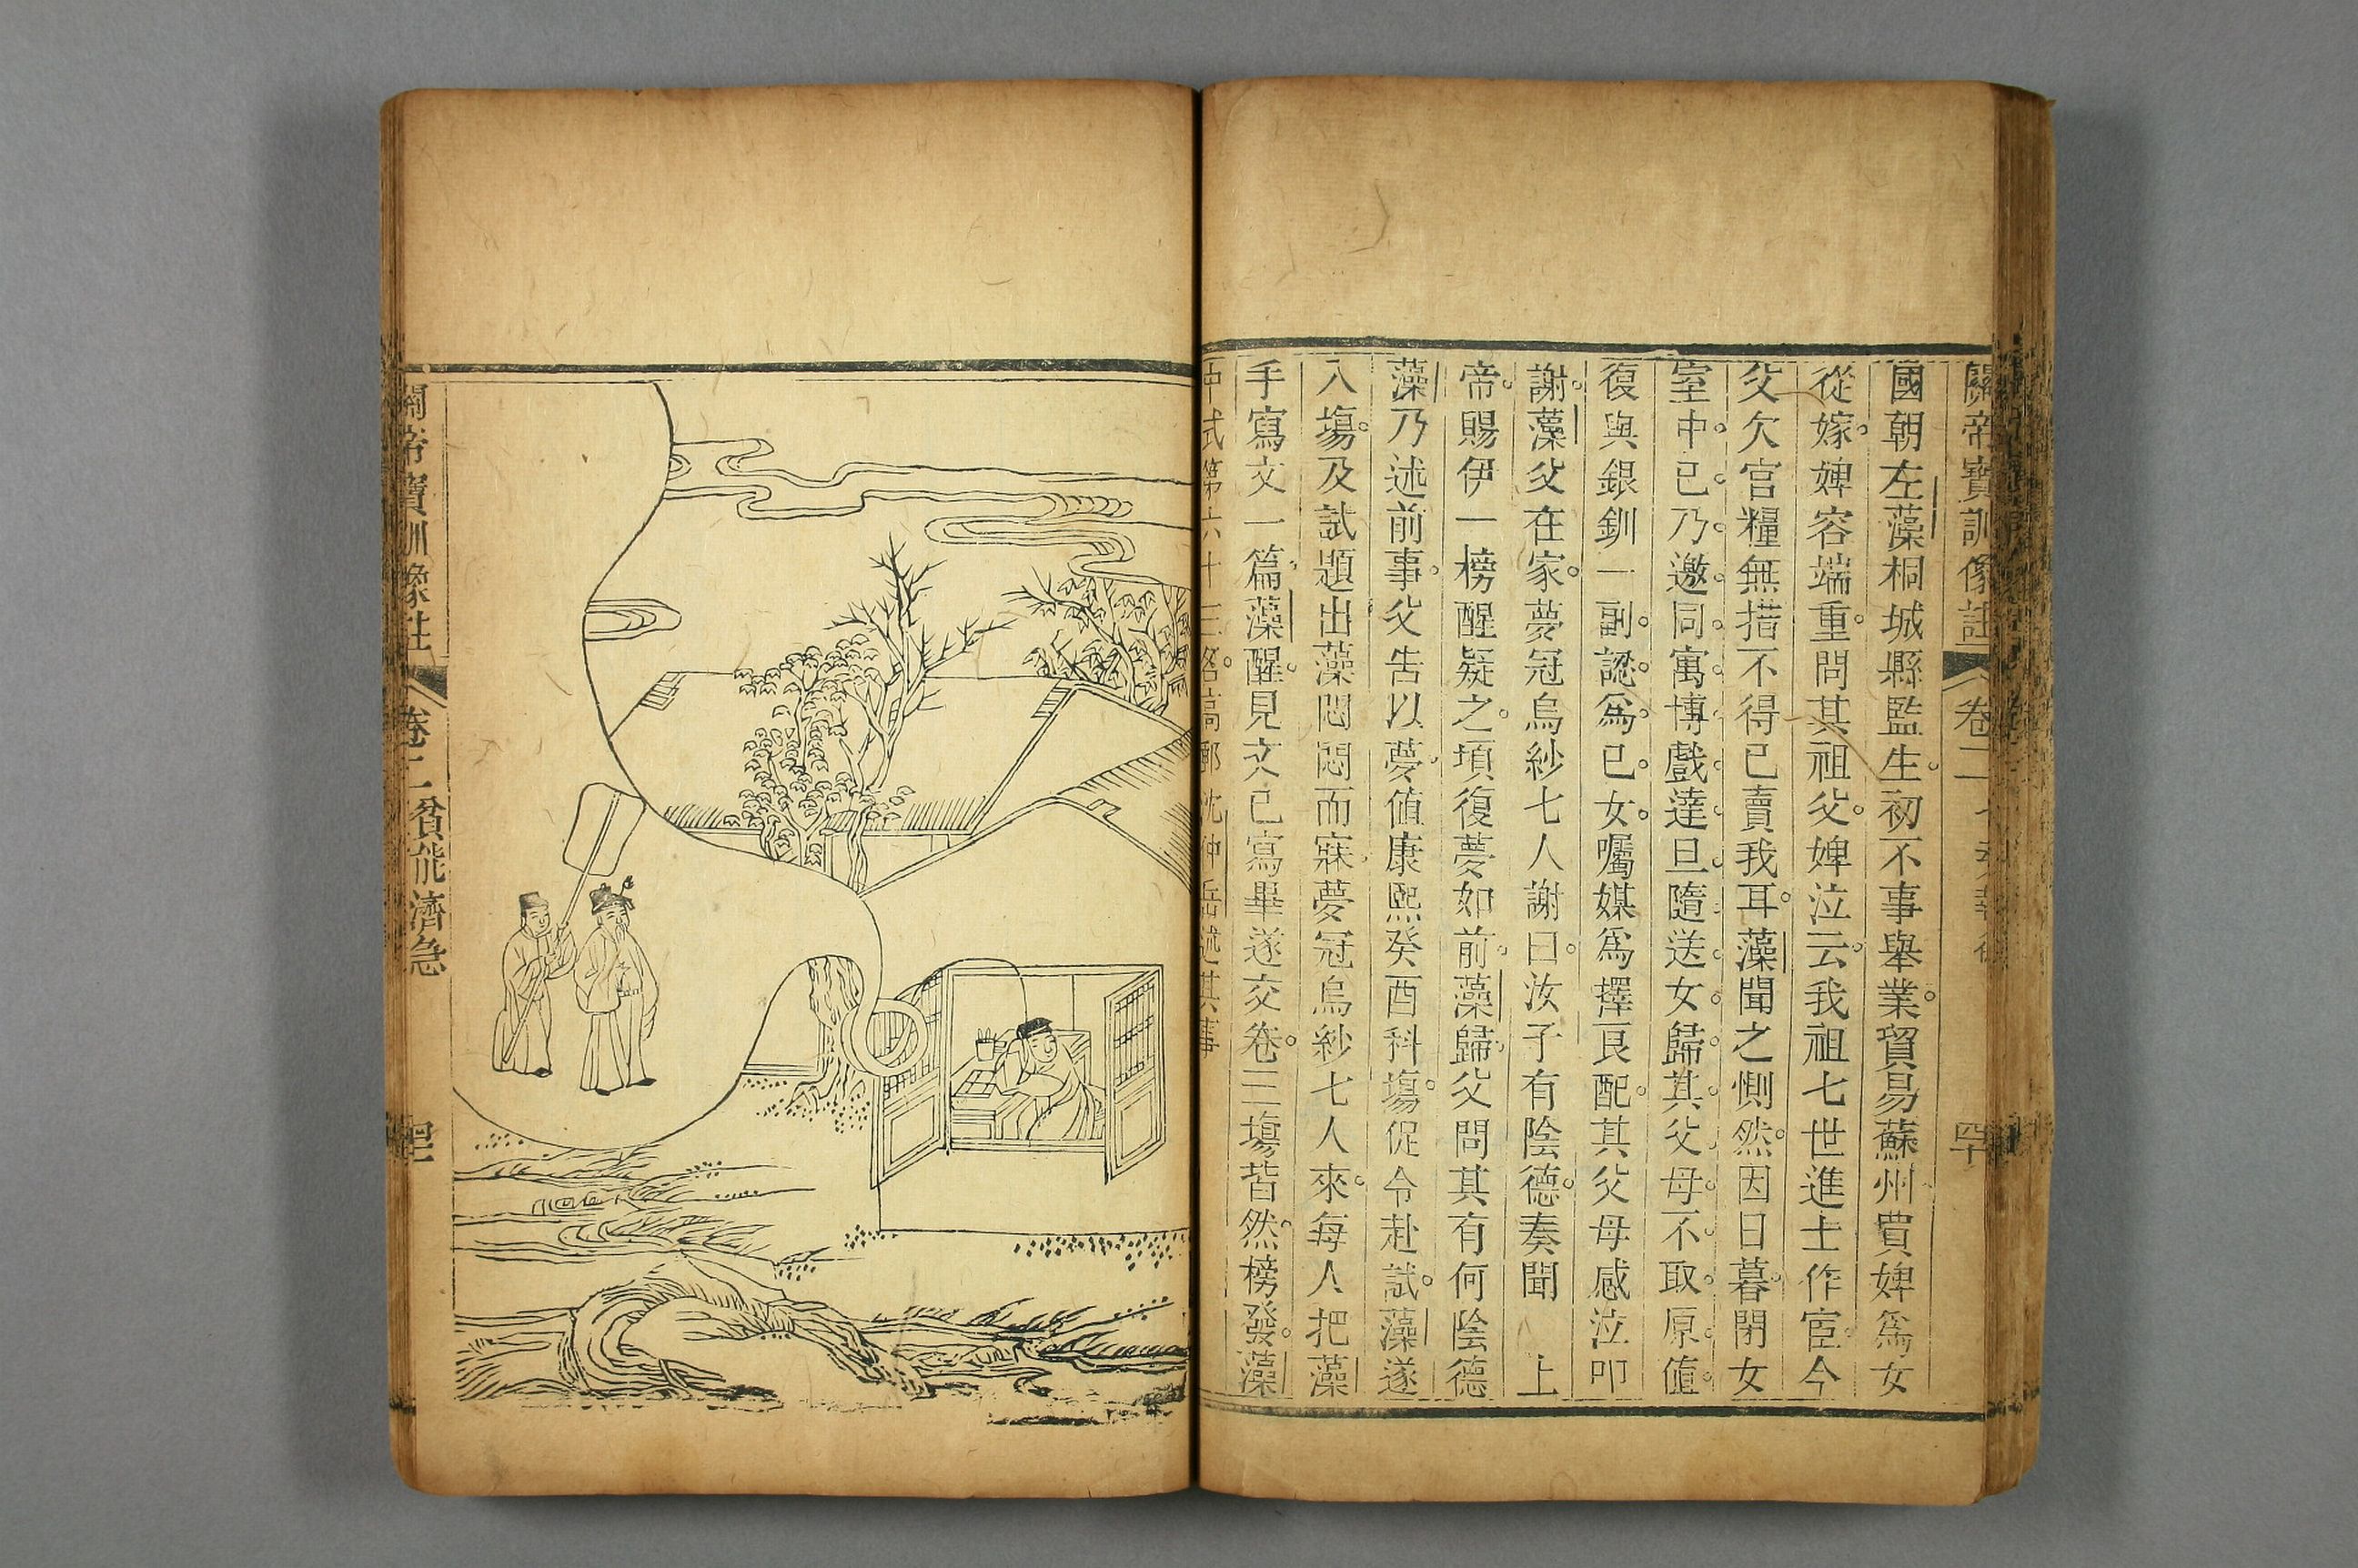 關帝寶訓像註 卷二 四十
國朝左藻桐城縣監生初不事舉業貿易蘇州買婢爲女
從嫁婢容端重問其祖父婢泣云我祖七世進士作宦今
父欠官糧無措不得已賣我耳藻聞之惻然因日暮閉女
室中已乃邀同寓博戲達旦隨送女歸其父母不取原值
復與銀釧一副認爲已女囑媒爲擇良配其父母感泣叩
謝藻父在家夢冠烏紗七人謝曰汝子有陰德奏聞 上
帝賜伊一榜醒疑之頃復夢如前藻歸父問其有何陰德
藻乃述前事父告以夢值康熙癸酉科塲促令赴試藻遂
入塲及試題出藻悶悶而寐夢冠烏紗七人來每人把藻
手寫文一篇藻醒見文已寫畢遂交卷三塲皆然榜發藻
中式第六十三名高郵沈仲岳述其事
關帝寶訓像註 卷二 貧能濟急